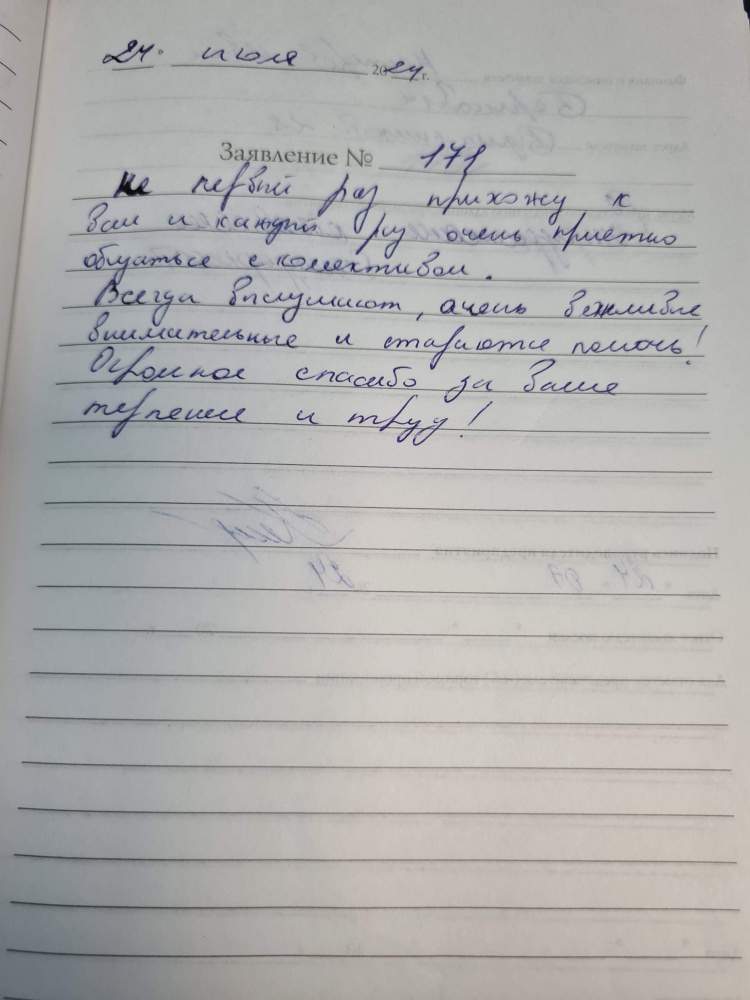 24. июля 2024 г.
Заявление № 171
Не первый раз прихожу к
вам и каждый раз очень приятно
общаться с коллективом.
Всегда выслушают, очень вежливые
внимательные и стараются помочь!
Огромное спасибо за ваше
терпение и труд!